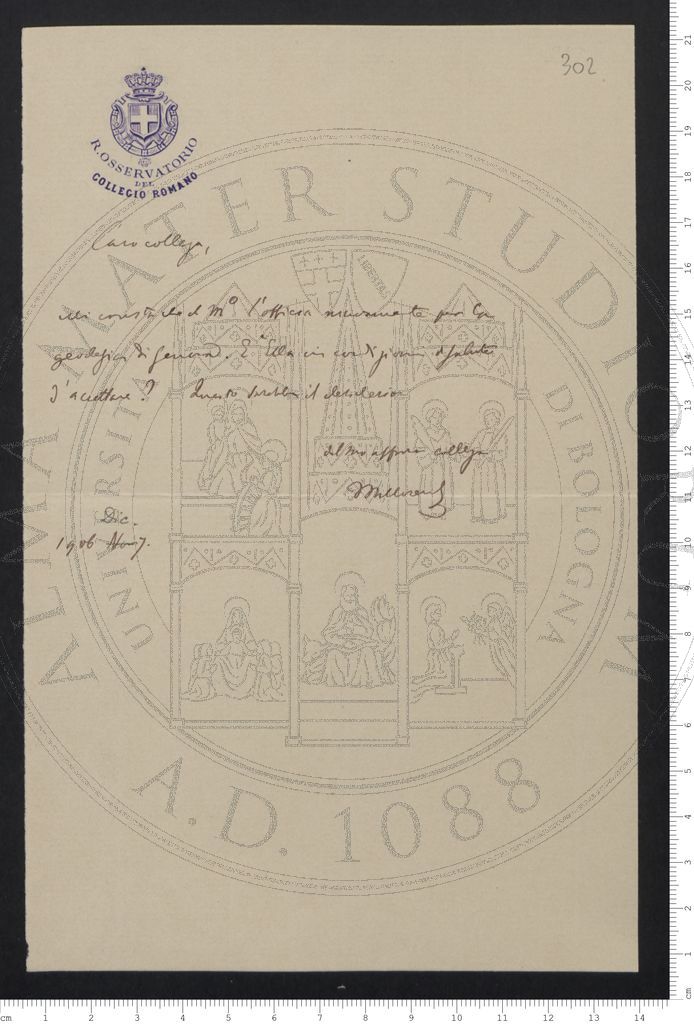 302
R. OSSERVATORIO
DEL
COLLEGIO ROMANO
ALMA MATER STUDIORUM
UNIVERSITÀ DI BOLOGNA
LIBERTAS
Caro collega,
Mi consta che il Mº l'officia nuovamente per la
geologia di Genova. È Ella in condizioni di salute
d'accettare? Questo sarebbe il desiderio
del suo affmo collega
Millosevich
Dic.
1906 Nov 7.
A.D. 1088
cm 1 2 3 4 5 6 7 8 9 10 11 12 13 14
21
20
19
18
17
16
15
14
13
12
11
10
9
8
7
6
5
4
3
2
1
cm